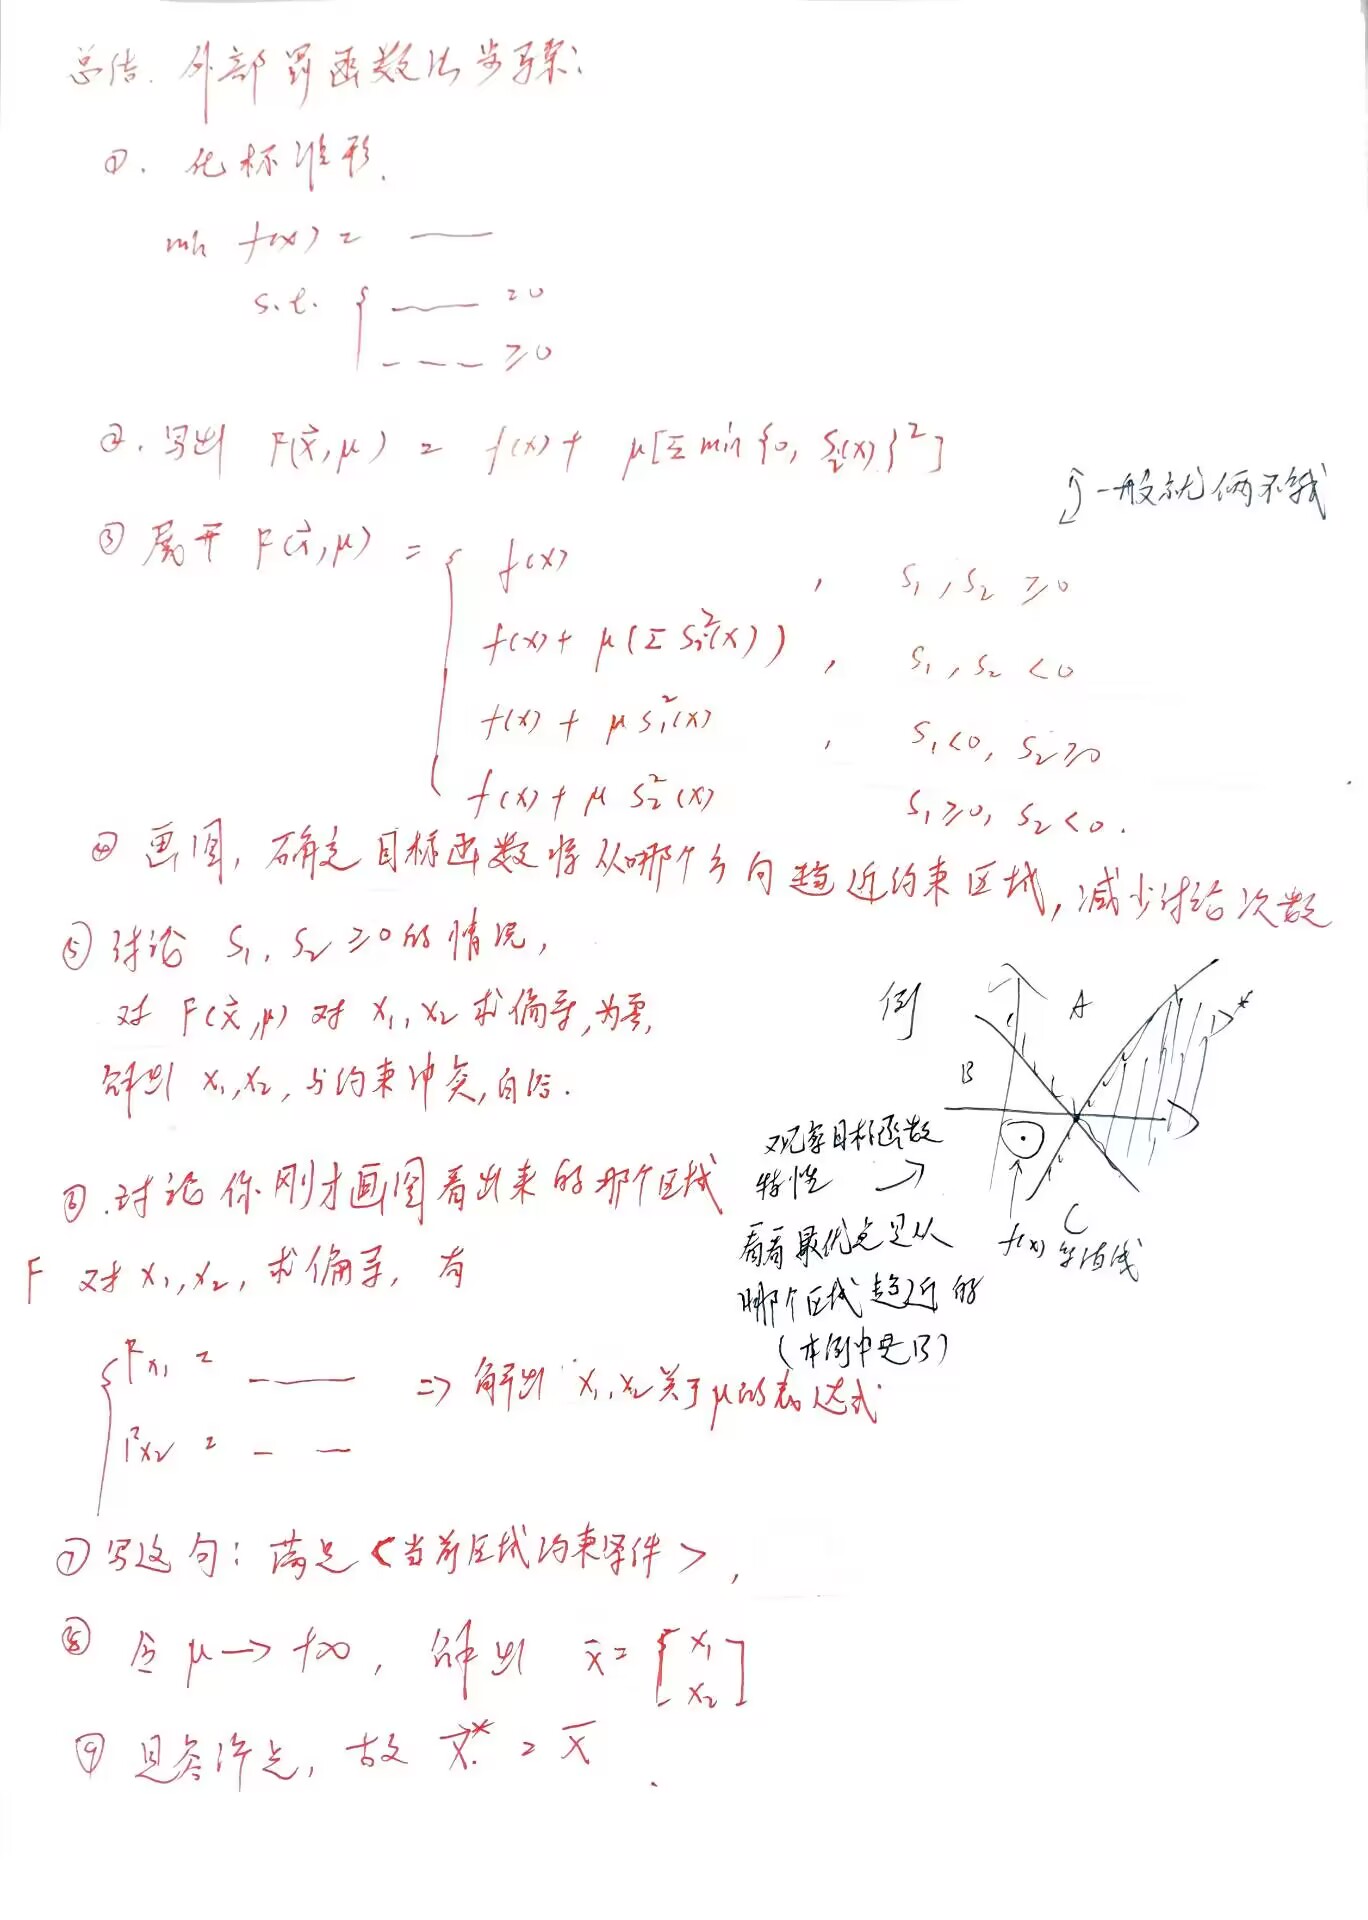 总结. 外部罚函数法步骤:
①. 化标准形.
min f(x) = ——
s.t. { —— =0
- - - ≥0
②. 写出 F(x⃗,μ) = f(x)+ μ[Σ min{0, Sᵢ(x)}²]
一般就俩不等式
③ 展开 F(x⃗,μ) = { f(x) , S₁,S₂ ≥0
f(x)+ μ(Σ Sᵢ²(x)) , S₁,S₂ <0
f(x) + μ S₁²(x) , S₁<0, S₂≥0
f(x)+ μ S₂²(x) S₁≥0, S₂<0.
④ 画图, 确定目标函数将从哪个方向趋近约束区域, 减少讨论次数
⑤ 讨论 S₁, S₂ ≥0的情况,
对 F(x⃗,μ) 对 x₁,x₂ 求偏导,为零,
解出 x₁,x₂, 与约束冲突,自洽.
例
A
B
C
f(x) 等值线
观察目标函数
特性
看看最优点是从
哪个区域趋近的
(本例中是B)
⑥. 讨论你刚才画图看出来的那个区域
F 对 x₁,x₂, 求偏导, 有
{ Fx₁ = ——
Fx₂ = — —
=> 解出 x₁,x₂关于μ的表达式
⑦ 写这句: 满足<当前区域约束条件>,
⑧ 令 μ→+∞, 解出 x̄= [x₁
x₂]
⑨ 是容许点, 故 x⃗* = x̄.